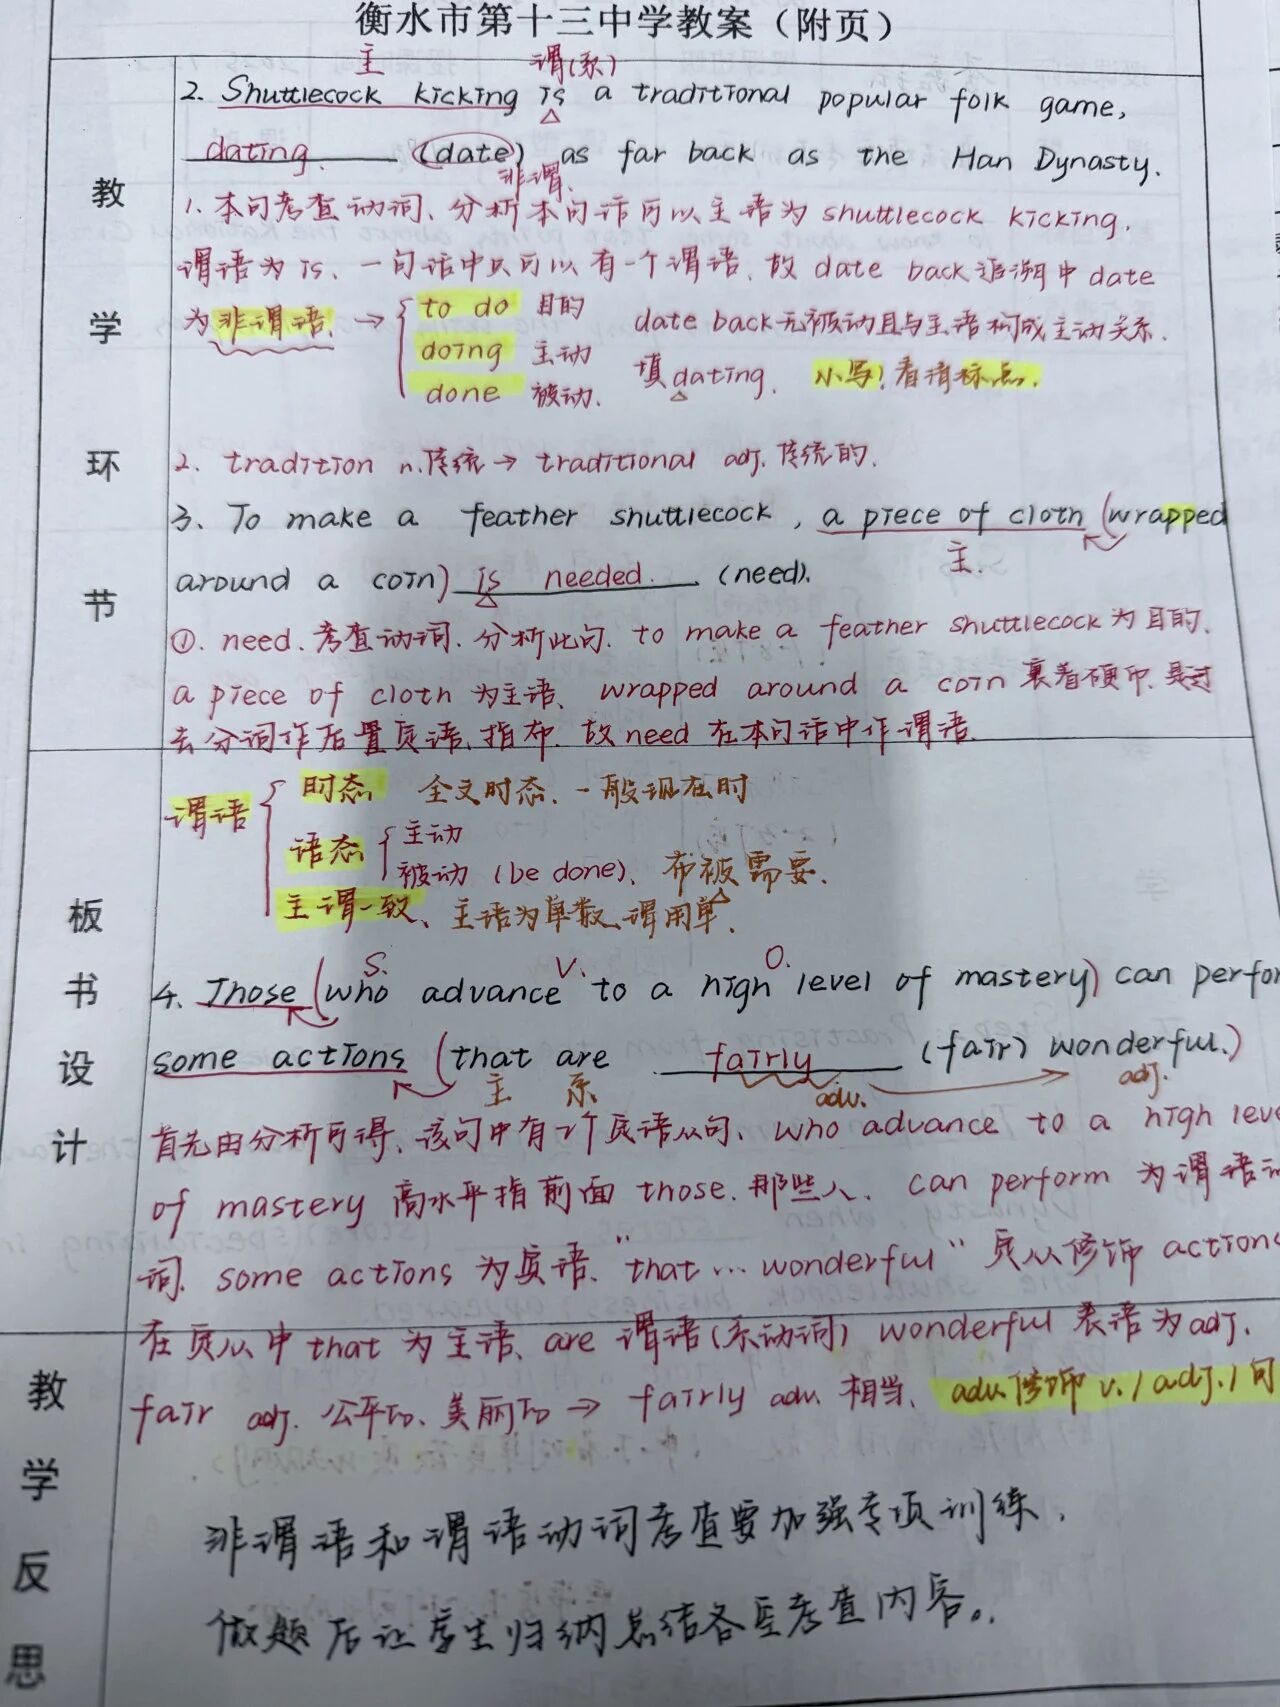 衡水市第十三中学教案（附页）
主 谓(系)
2. Shuttlecock kicking is a traditional popular folk game,
dating (date) as far back as the Han Dynasty.
非谓.
1. 本句考查动词、分析本句话可以主语为 shuttlecock kicking,
谓语为 is、一句话中只可以有一个谓语、故 date back 追溯中 date
为非谓语. → to do 目的 date back 无被动且与主语构成主动关系.
doing 主动 填 dating. 小写! 看清标点.
done 被动.
2. tradition n.传统 → traditional adj. 传统的.
3. To make a feather shuttlecock, a piece of cloth (wrapped
主.
around a coin) is needed. (need).
①. need. 考查动词. 分析此句. to make a feather shuttlecock 为目的.
a piece of cloth 为主语、wrapped around a coin 裹着硬币. 是过
去分词作后置定语、指布. 故 need 在本句话中作谓语.
谓语 时态 全文时态、一般现在时
语态 主动
被动 (be done)、布被需要.
主谓一致、主语为单数、谓用单.
S. V. O.
4. Those (who advance to a high level of mastery) can perfor
some actions (that are fairly (fair) wonderful.)
主 系 adv. adj.
首先由分析可得、该句中有2个定语从句、who advance to a high leve
of mastery 高水平指前面 those. 那些人、can perform 为谓语动
词. some actions 为宾语. "that … wonderful" 定从修饰 actions
在定从中 that 为主语、are 谓语(系动词) wonderful 表语为 adj.
fair adj. 公平的、美丽的 → fairly adv. 相当、adv.修饰 v./adj./句
非谓语和谓语动词考查要加强专项训练.
做题后让学生归纳总结各空考查内容。
教
学
环
节
板
书
设
计
教
学
反
思